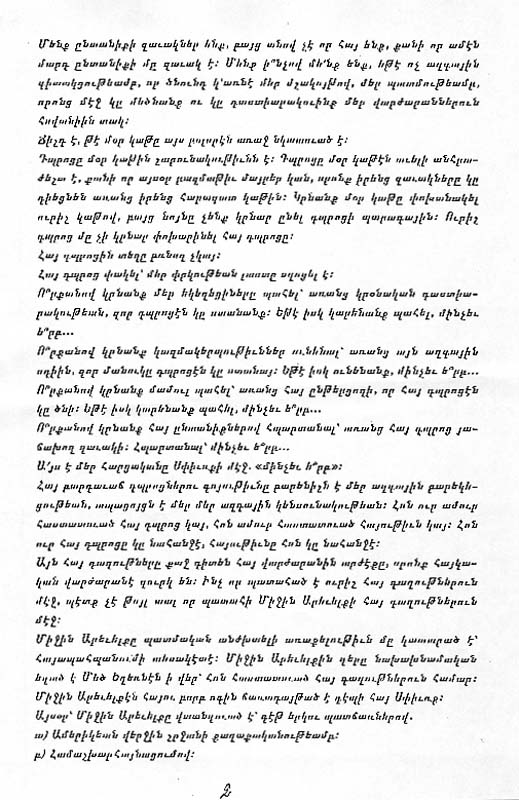 Մենք ընտանիքի զաւակներ ենք, բայց ասով չէ որ հայ ենք, քանի որ ամէն
մարդ ընտանիքի մը զաւակ է: Մենք ի՞նչով մե՛նք ենք, եթէ ոչ ազգային
գիտակցութեամբ, որ ծնունդ կ՚առնէ մեր մշակոյթով, մեր պատմութեամբ,
որոնց մէջ կը մեծնանք ու կը դաստիարակուինք մեր վարժարաններուն
հովանիին տակ:
Ճիշդ է, թէ մօր կաթը այս բոլորէն առաջ նկատուած է:
Դպրոցը մօր կաթին շարունակութիւնն է: Դպրոցը մօր կաթէն աւելի անհրա-
ժեշտ է, քանի որ այսօր բազմաթիւ մայրեր կան, որոնք իրենց զաւակները կը
դիեցնեն առանց իրենց հարազատ կաթին: Կրնանք մօր կաթը փոխանակել
ուրիշ կաթով, բայց նոյնը չենք կրնար ընել դպրոցի պարագային: Ուրիշ
դպրոց մը չի կրնար փոխարինել հայ դպրոցը:
Հայ դպրոցին տեղը բռնող չկայ:
Հայ դպրոց փակել՝ մեր փրկութեան լաստը այրել է:
Ո՞րքանով կրնանք մեր եկեղեցիները պահել՝ առանց կրօնական դաստիա-
րակութեան, զոր դպրոցէն կը ստանանք: Եթէ իսկ կարենանք պահել, մինչեւ
ե՞րբ...
Ո՞րքանով կրնանք կազմակերպութիւններ ունենալ՝ առանց այն ազգային
ոգիին, զոր մանուկը դպրոցէն կը ստանայ: Եթէ իսկ ունենանք, մինչեւ ե՞րբ...
Ո՞րքանով կրնանք մամուլ պահել՝ առանց հայ ընթերցողի, որ հայ դպրոցէն
կը ծնի: Եթէ իսկ կարենանք պահել, մինչեւ ե՞րբ...
Ո՞րքանով կրնանք հայ ընտանիքներով հպարտանալ՝ առանց հայ դպրոց յա-
ճախող զաւակի: Հպարտանալ՝ մինչեւ ե՞րբ...
Ա՛յս է մեր հարցականը Սփիւռքի մէջ. «մինչեւ ե՞րբ»:
Հայ բարգաւաճ դպրոցներու գոյութիւնը բարենիշն է մեր ազգային բարեկե-
ցութեան, ապացոյցն է մեր մեր ազգային կենսունակութեան: Հոն ուր ամուր
հաստատուած հայ դպրոց կայ, հոն ամուր հաստատուած հայութիւն կայ: Հոն
ուր հայ դպրոցը կը նահանջէ, հայութիւնը հոն կը նահանջէ:
Այն հայ գաղութները քաջ գիտեն հայ վարժարանին արժէքը, որոնք հայկա-
կան վարժարանէ զուրկ են: Ինչ որ պատահած է ուրիշ հայ գաղութներուն
մէջ, պէտք չէ թոյլ տալ որ պատահի Միջին Արեւելքի հայ գաղութներուն
մէջ:
Միջին Արեւելքը պատմական անժխտելի առաքելութիւն մը կատարած է՝
հայապահպանումի տեսակէտէ: Միջին Արեւելքին դերը նախախնամական
եղած է Մեծ Եղեռնէն ի վեր՝ հոն հաստատուած հայ գաղութներուն համար:
Միջին Արեւելքէն հայու բորբ ոգին ճառագայթած է դէպի հայ Սփիւռք:
Այսօր՝ Միջին Արեւելքը վտանգուած է՝ գէթ երկու պատճառներով.
ա) Ամերիկեան վերջին շրջանի քաղաքականութեամբ:
բ) Համաշխարհայնացումով:
2